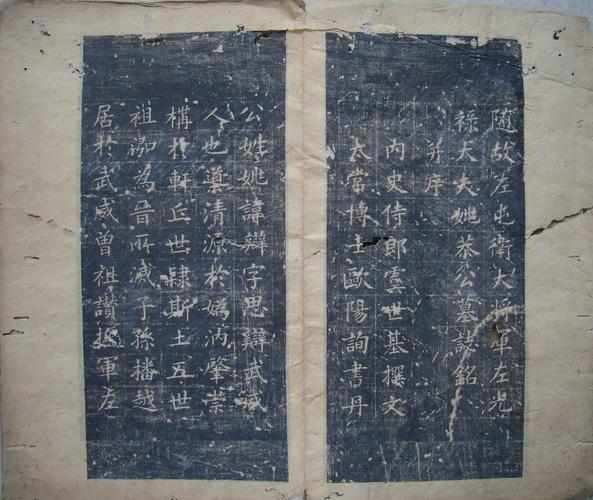 隨故左屯衛大將軍左光
祿大夫姚恭公墓誌銘
并序
内史侍郎虞世基撰文
太常博士歐陽詢書丹
公姓姚諱辯字思辯武威
人也導清源於媯汭肇崇
構扵軒丘世隸斯土五世
祖泓為晉所滅子孫播越
居扵武威曾祖讚軍左